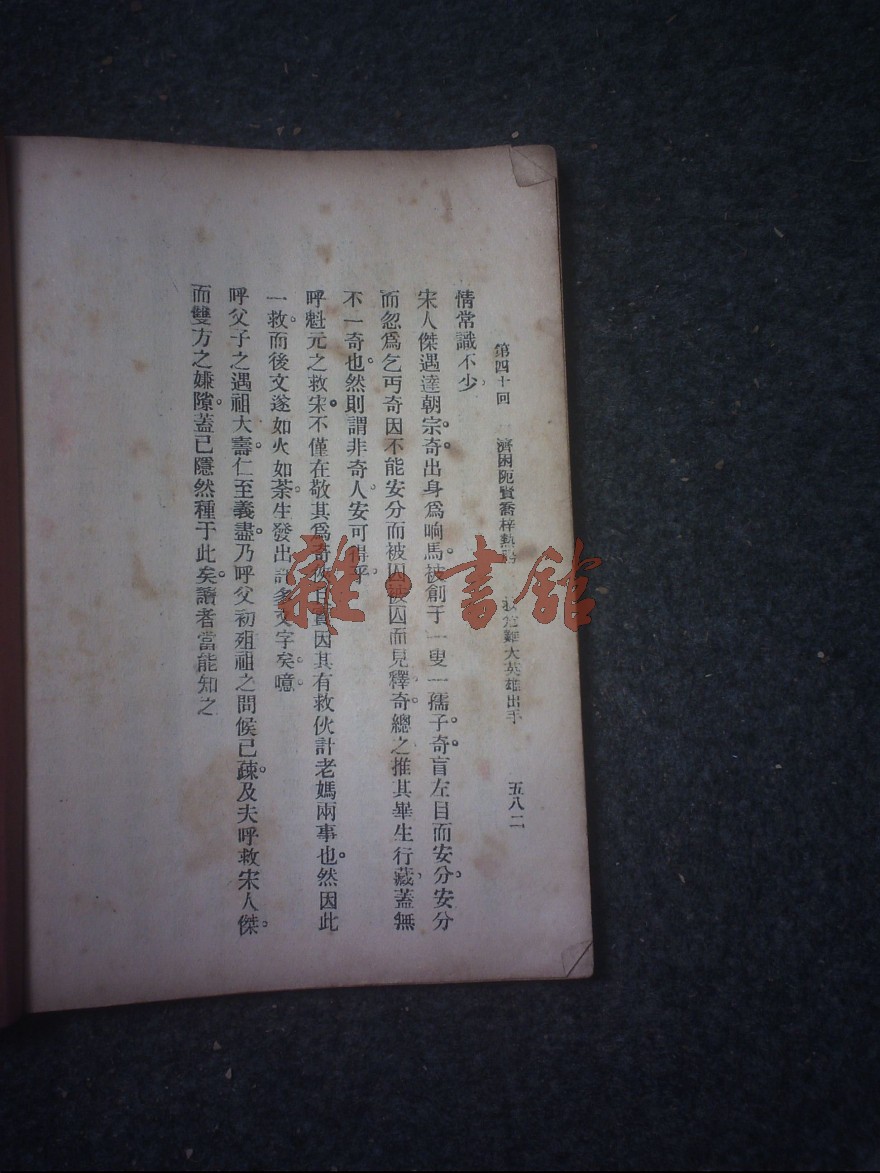 第四十回 濟困阨賢喬梓熱 難大英雄出手 五八二
情常識不少。
宋人傑遇達朝宗。奇。出身爲响馬。被創于一叟一孺子。奇。盲左目而安分。安分
而忽爲乞丐。奇。因不能安分而被囚。被囚而見釋。奇。總之推其畢生行藏。蓋無
不一奇也。然則謂非奇人。安可得乎。
呼魁元之救宋。不僅在敬其爲奇 因其有救伙計老媽兩事也。然因此
一救。而後文遂如火如荼。生發出許多文字矣。噫。
呼父子之遇祖大壽。仁至義盡。乃呼父初殂。祖之問候已疎。及夫呼救宋人傑。
而雙方之嫌隙。蓋已隱然種于此矣。讀者當能知之
雜·書館